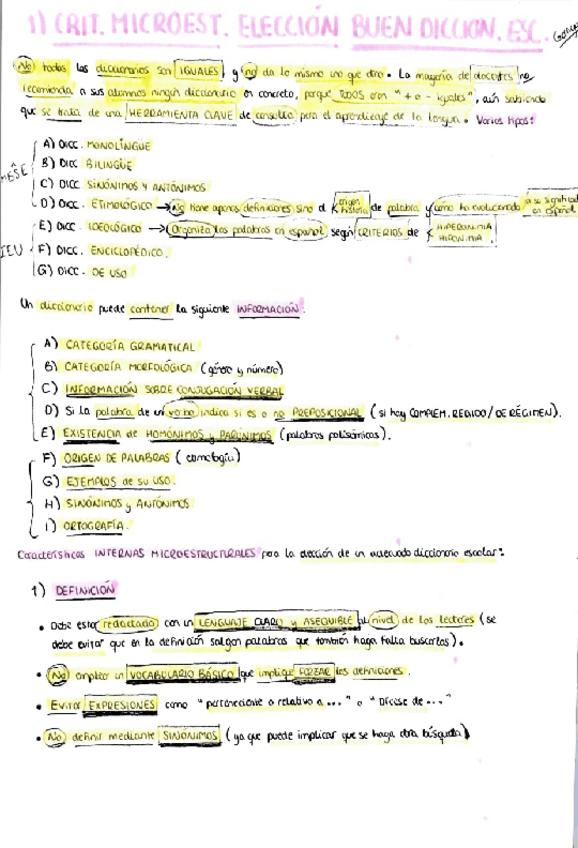 1) CRIT. MICROEST. ELECCIÓN BUEN DICCION. ESC.
No todos los diccionarios son IGUALES, y no da lo mismo uno que otro. La mayoría de docentes no
recomienda a sus alumnos ningún diccionario en concreto, porque TODOS eran "+ o - iguales", aún sabiendo
que se trata de una HERRAMIENTA CLAVE de consulta para el aprendizaje de la lengua. Varios tipos:
A) DICC. MONOLINGÜE
B) DICC. BILINGÜE
C) DICC. SINÓNIMOS Y ANTÓNIMOS
D) DICC. ETIMOLÓGICO → No tiene apenas definiciones sino el origen historia de palabra y cómo ha evolucionado a su significad en español
E) DICC. IDEOLÓGICO → Organiza las palabras en español según CRITERIOS de HIPERONIMIA HIPONIMIA
F) DICC. ENCICLOPÉDICO.
G) DICC. DE USO
Un diccionario puede contener la siguiente INFORMACIÓN:
A) CATEGORÍA GRAMATICAL
B) CATEGORÍA MORFOLÓGICA (género y número)
C) INFORMACIÓN SOBRE CONJUGACIÓN VERBAL
D) Si la palabra de un verbo indica si es o no PREPOSICIONAL (si hay COMPLEM. REGIDO / DE RÉGIMEN).
E) EXISTENCIA de HOMÓNIMOS y PARÓNIMOS (palabras polisémicas).
F) ORIGEN DE PALABRAS (etimología)
G) EJEMPLOS de su USO.
H) SINÓNIMOS y ANTÓNIMOS
I) ORTOGRAFÍA.
Características INTERNAS MICROESTRUCTURALES para la elección de un adecuado diccionario escolar:
1) DEFINICIÓN
• Debe estar redactada con un LENGUAJE CLARO y ASEQUIBLE al nivel de los lectores (se
debe evitar que en la definición salgan palabras que también haga falta buscarlas).
• No emplear un VOCABULARIO BÁSICO que implique FORZAR las definiciones.
• Evitar EXPRESIONES como "perteneciente o relativo a..." o "Dícese de..."
• No definir mediante SINÓNIMOS (ya que puede implicar que se haga otra búsqueda)